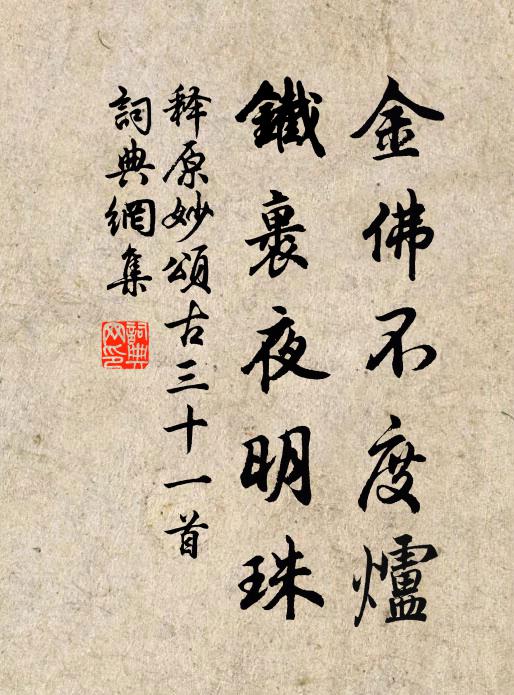 金佛不度爐
鐵裹夜明珠
释原妙頌古三十一首
詞典網集
詞典網印